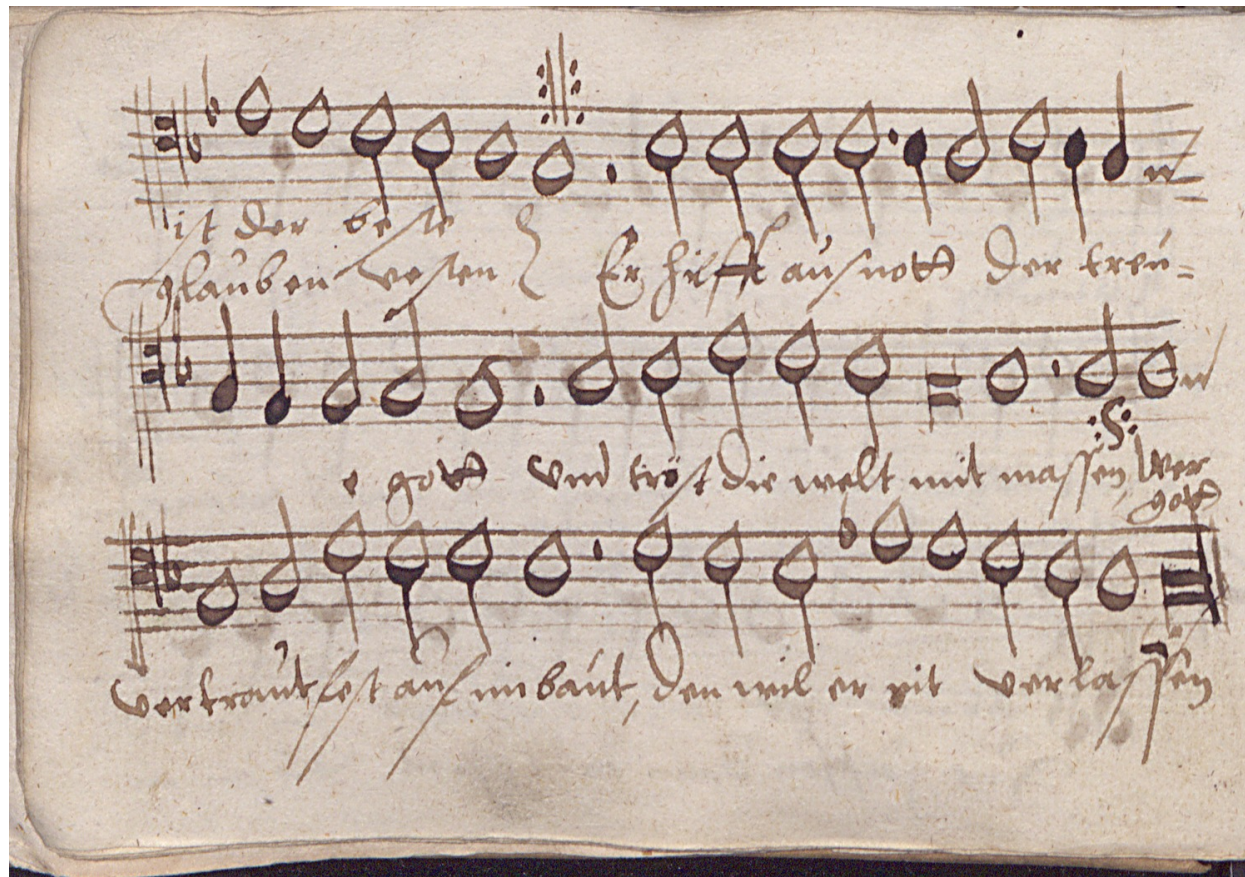 ist der beste
glauben vesten Er hilfft aus nott der treu-
e gott vnd tröst die welt mit massen, Wer
gott
vertraut fest auf im baut, den wil er nit verlassen